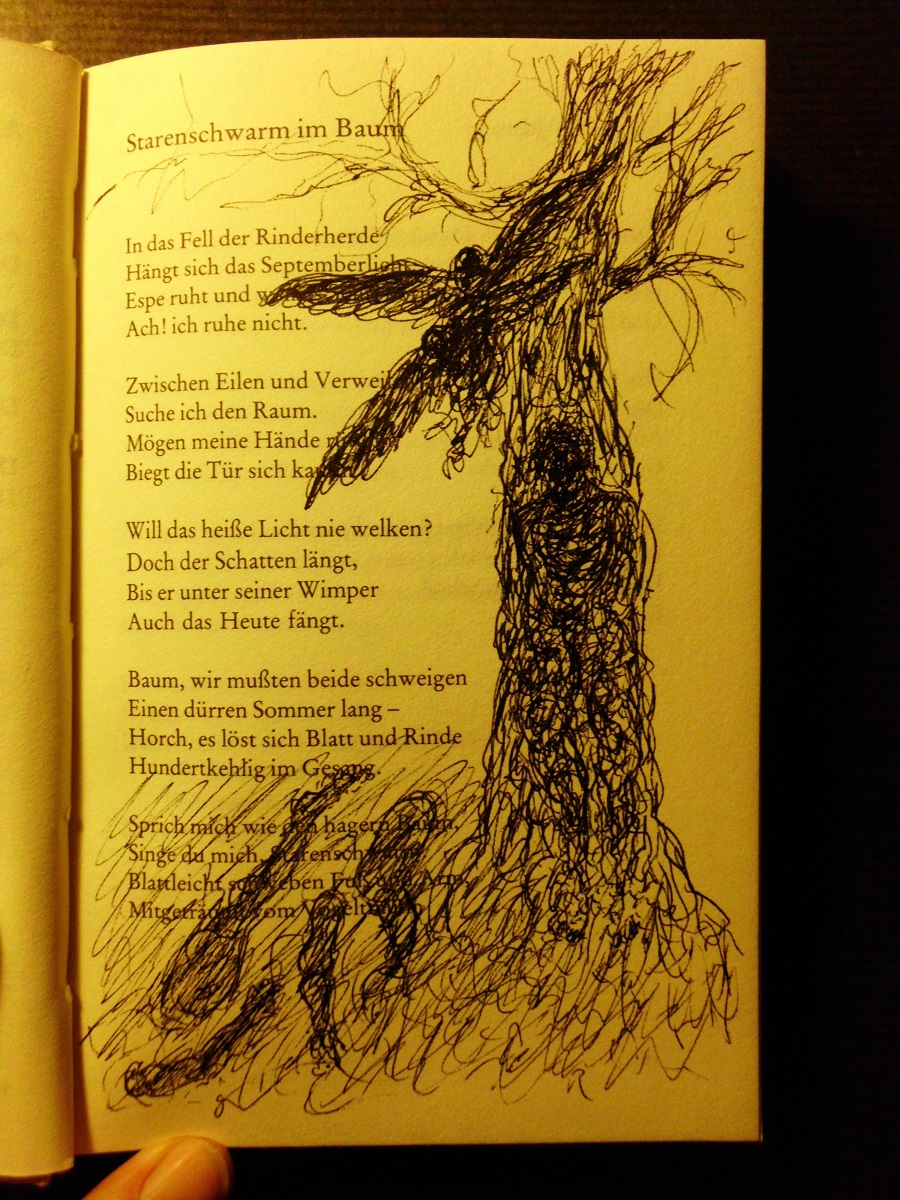 Starenschwarm im Baum
In das Fell der Rinderherde
Hängt sich das Septemberlicht.
Espe ruht und
Ach! ich ruhe nicht.
Zwischen Eilen und Verweilen
Suche ich den Raum.
Mögen meine Hände
Biegt die Tür sich kaum.
Will das heiße Licht nie welken?
Doch der Schatten längt,
Bis er unter seiner Wimper
Auch das Heute fängt.
Baum, wir mußten beide schweigen
Einen dürren Sommer lang –
Horch, es löst sich Blatt und Rinde
Hundertkehlig im Gesang.
Sprich mich wie den hagern Baum,
Singe du mich, Starenschwarm,
Blattleicht schweben Fuß und Arm,
Mitgeträumt vom Vogeltraum.